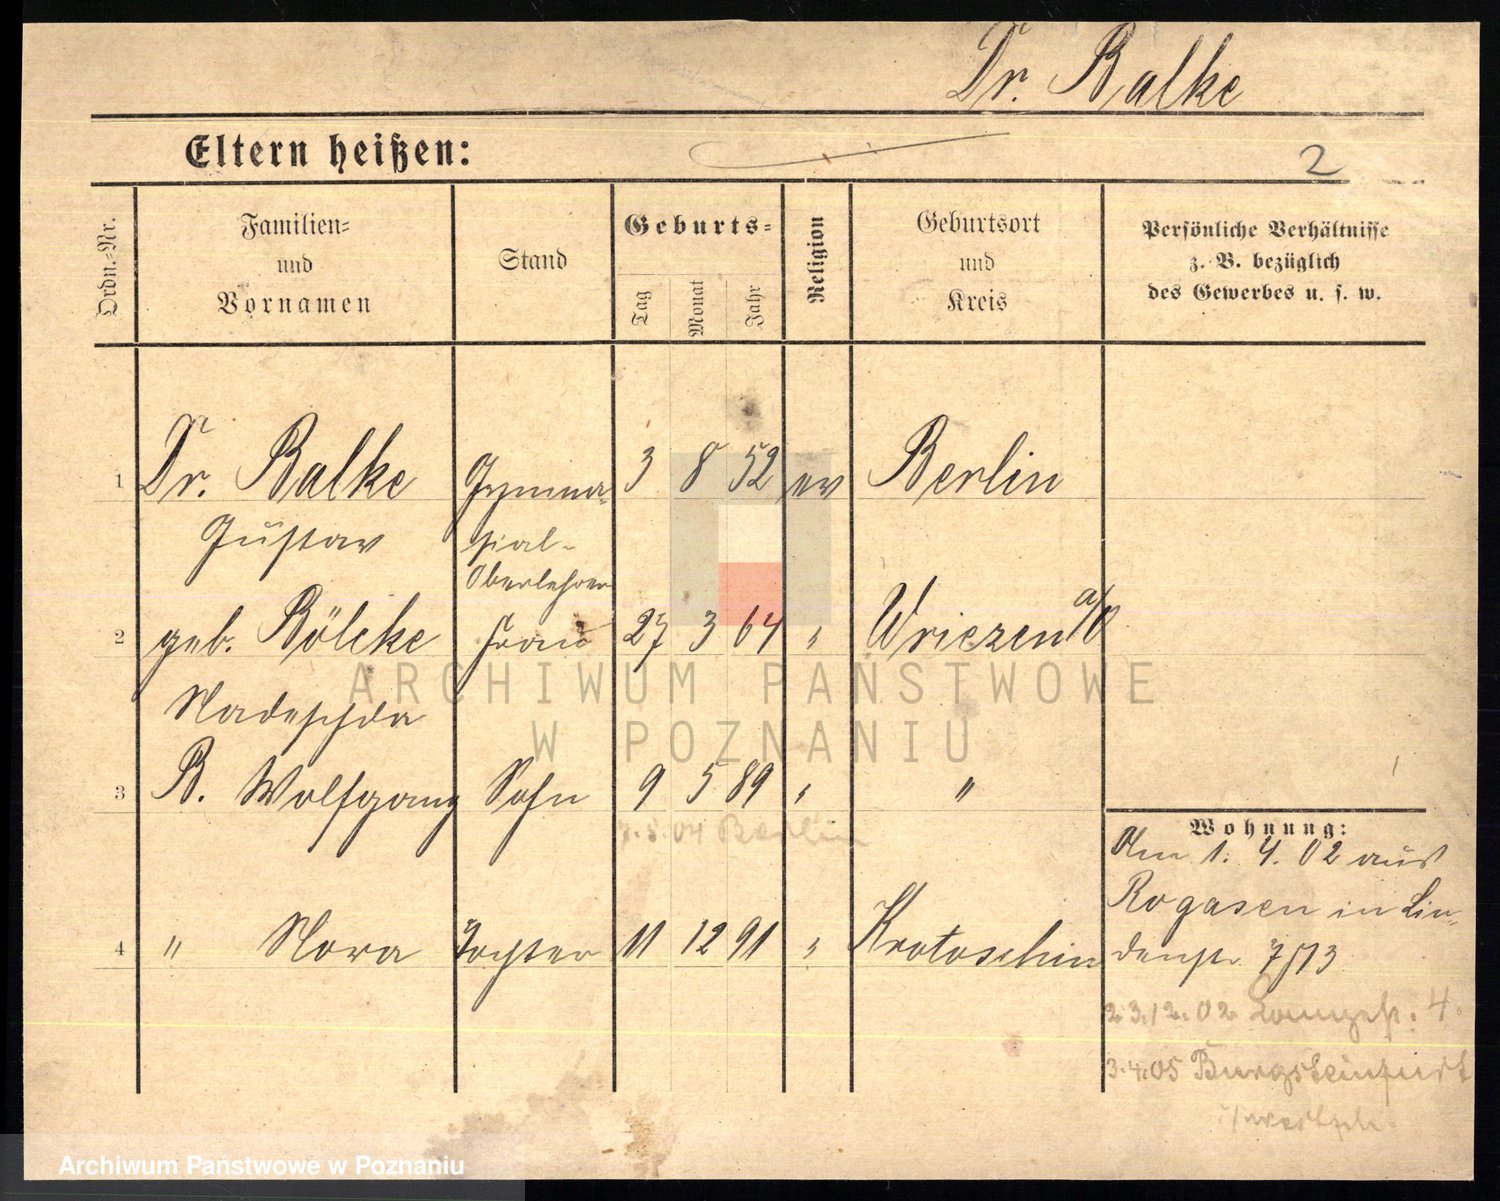 Dr. Balke
Eltern heißen:
2
Ordn.-Nr.
Familien-
und
Vornamen
Stand
Geburts-
Tag
Monat
Jahr
Religion
Geburtsort
und
Kreis
Persönliche Verhältnisse
z. B. bezüglich
des Gewerbes u. s. w.
1 Dr. Balke Gymna- 3 8 52 ev Berlin
Gustav sial-
Oberlehrer
2 geb. Bölcke Frau 27 3 64 " Wriezen a/O
Nadeschda
3 B. Wolfgang Sohn 9 5 89 " "
7.5.04 Berlin
Wohnung:
Am 1. 4. 02 aus
Rogasen in Lin-
4 " Nora Tochter 11 12 91 " Krotoschin denstr. 7/13
23.12.02 4.
3.4.05 Burgsteinfurt
i/Westph.
ARCHIWUM PAŃSTWOWE
W POZNANIU
Archiwum Państwowe w Poznaniu